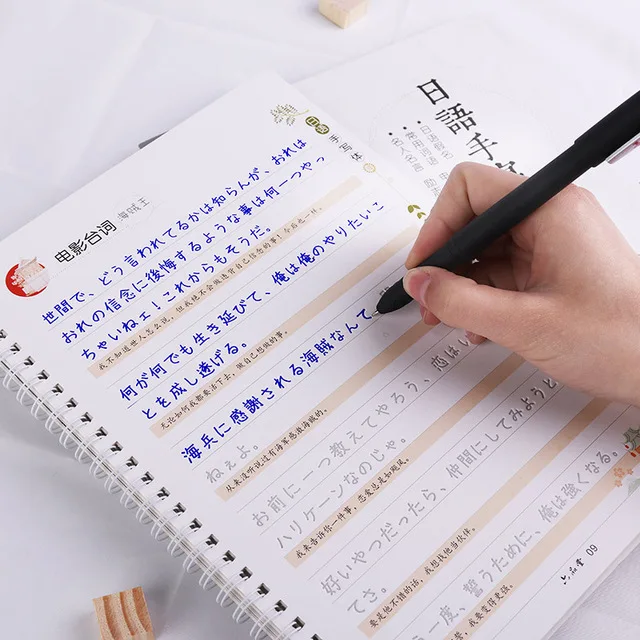 日語
手写体
电影台词 海贼王
世間で、どう言われてるかは知らんが、おれは
おれの信念に後悔するような事は何一つやっ
ちゃいねェ!これからもそうだ。
我不知道世人怎么说,但我决不会做违背自己信念的事!今后也一样。
何が何でも生き延びて、俺は俺のやりたいこ
とを成し遂げる。
无论如何我都要活下去,做自己想做的事。
海兵に感謝される海賊なんて
ねぇよ。
从来没听说过有海军感激海贼的。
お前に一つ教えてやろう、恋はい
ハリケーンなのじゃ。
我来告诉你一件事,恋爱总是如飓风。
好いやつだったら、仲間にしてみようと
てさ。
要是他不错的话,我想找他当伙伴。
一度、誓うために、俺は強くなる。
我要变得更强。
六品堂 09
日語手
日语假名
常用词语
名人名言